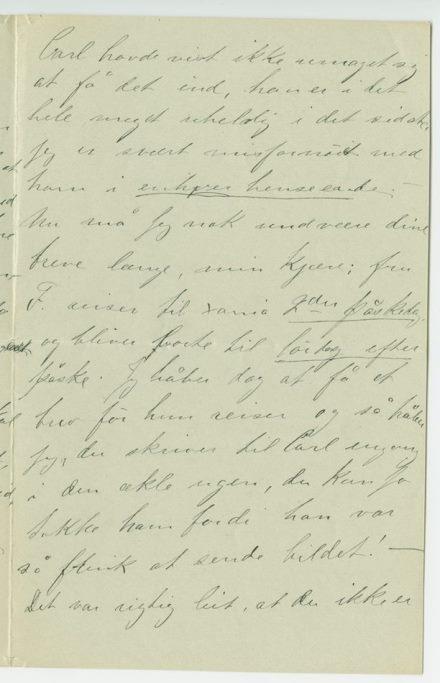 Carl havde vist ikke umaget sig
at få det ind, han er i det
hele meget uheldig i det sidste.
Jeg er svært misfornöiet med
ham i enhver henseende. –
Nu må jeg nok undvære dine
breve længe, min Kjære; fru
F. reiser til Xania 2den påskedag,
og bliver borte til lördag efter
påske. Jeg håber dog at få et
brev för hun reiser og så håber
jeg, du skriver til Carl engang
i den ækle ugen, du kan jo
takke ham fordi han var
så flink at sende bildet! –
Det var rigtig leit, at du ikke er